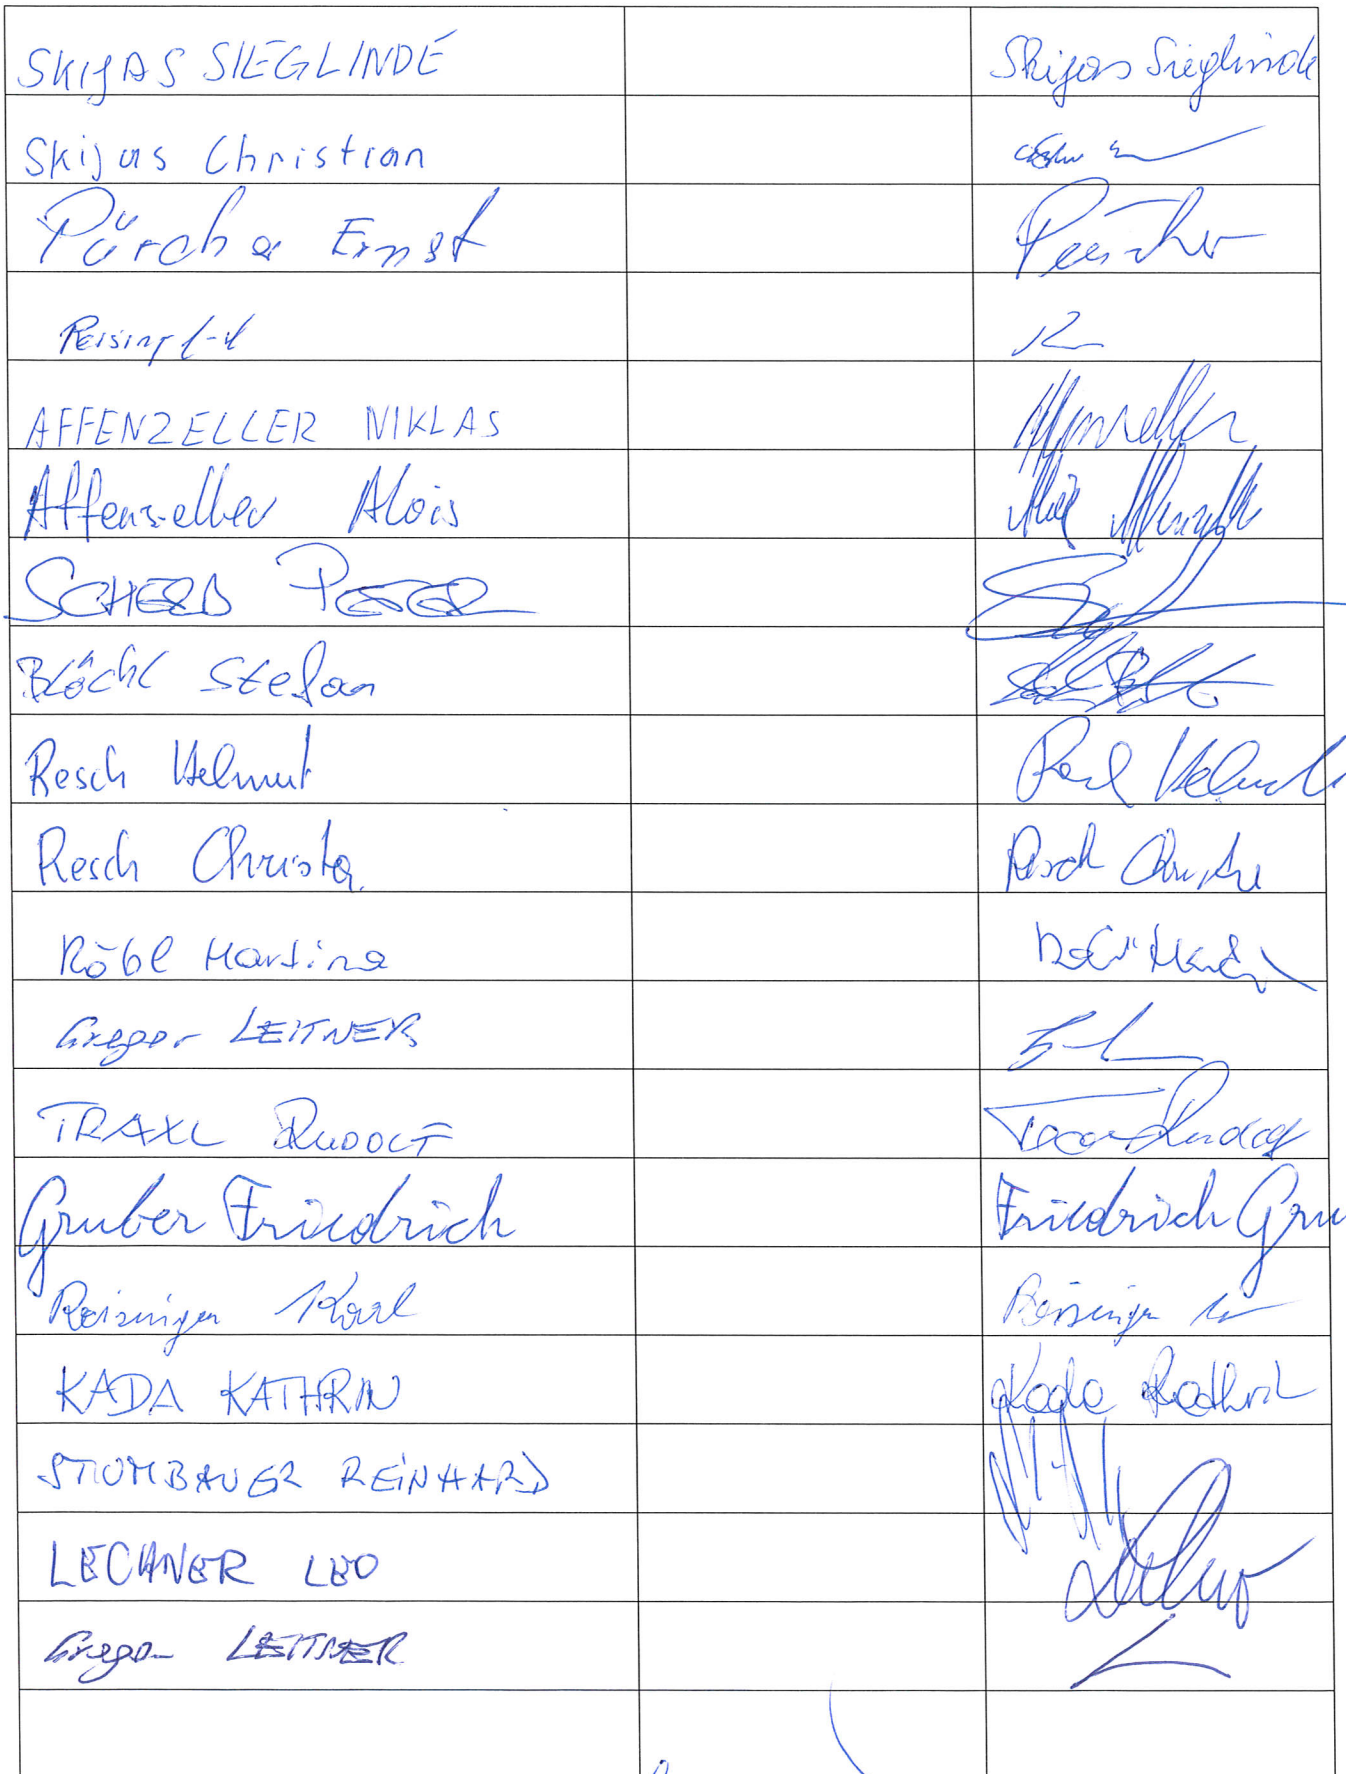 SKIJAS SIEGLINDE Skijas Sieglinde
Skijas Christian
Pürcher Ernst Pürcher
AFFENZELLER NIKLAS
Affenzeller Alois
SCHERB PETER
Blöchl Stefan
Resch Helmut Resch Helmut
Resch Christa Resch Christa
Röbl Martina
Gregor LEITNER
TRAXL RUDOLF Traxl Rudolf
Gruber Friedrich Friedrich Gru
Reisinger Karl Reisinger
KADA KATHRIN Kada Kathrin
STUMBAUER REINHARD
LECHNER LEO
Gregor LEITNER